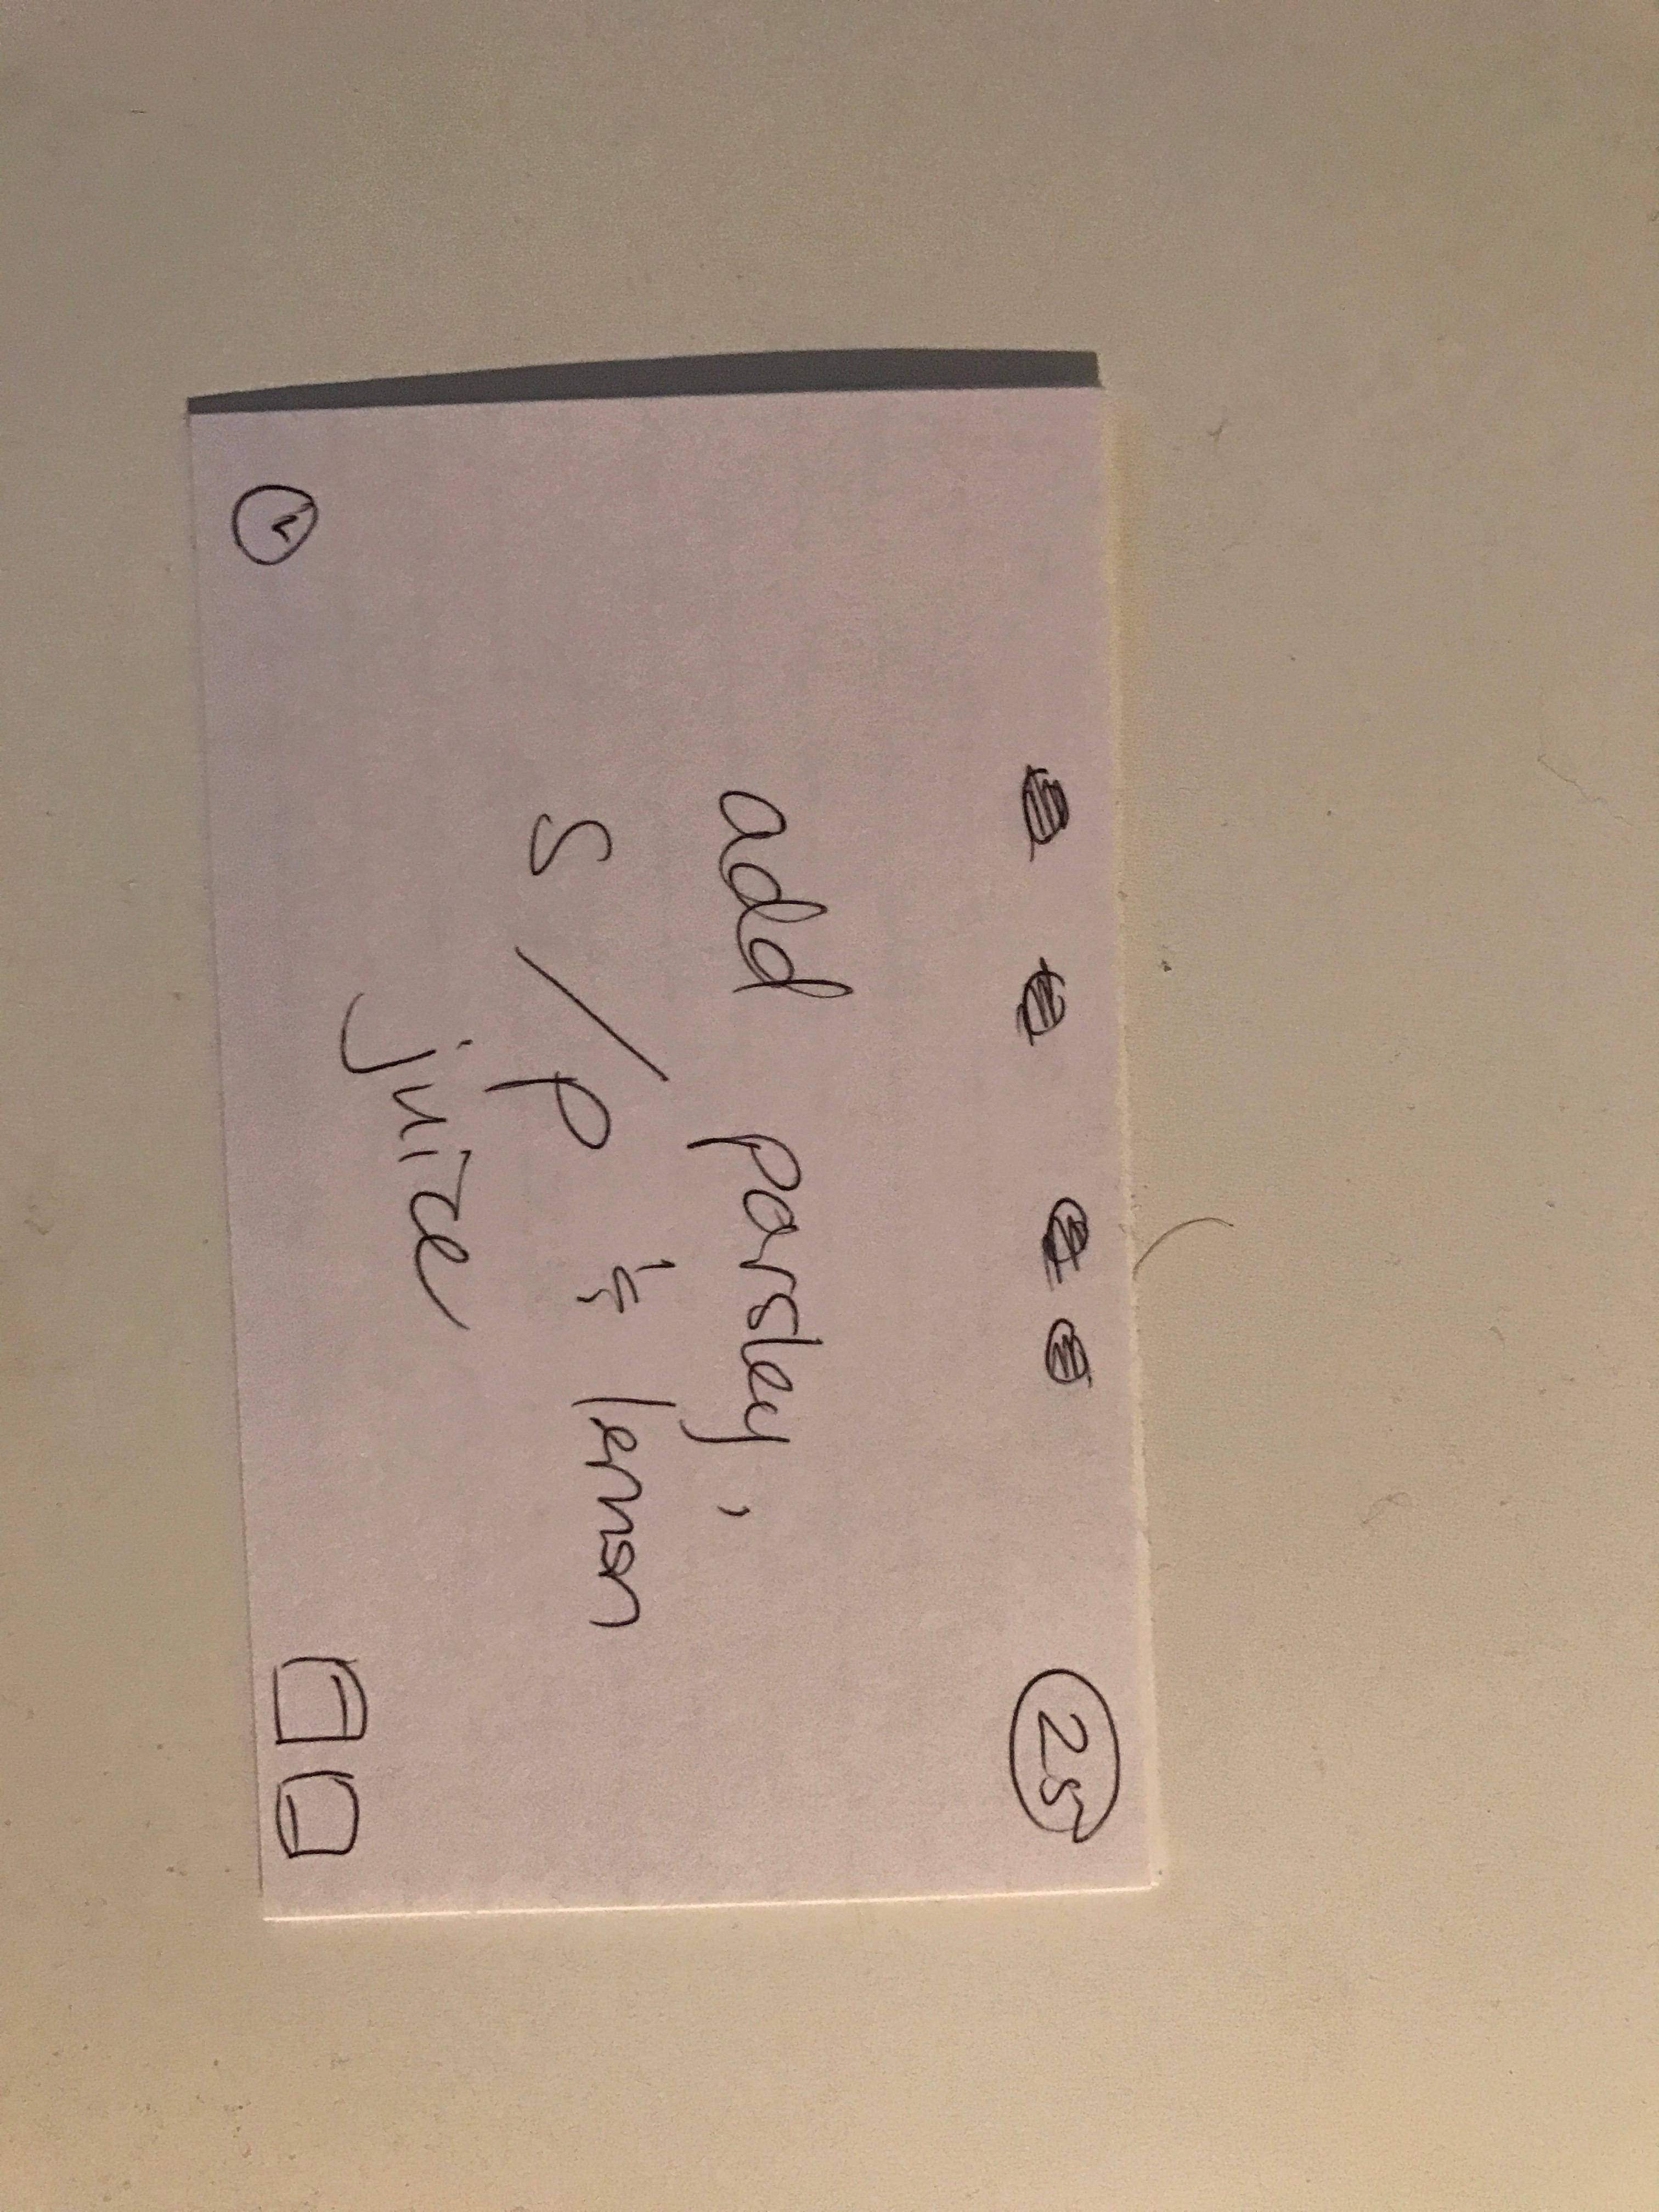 25
add parsley,
s/p & lemon
juice